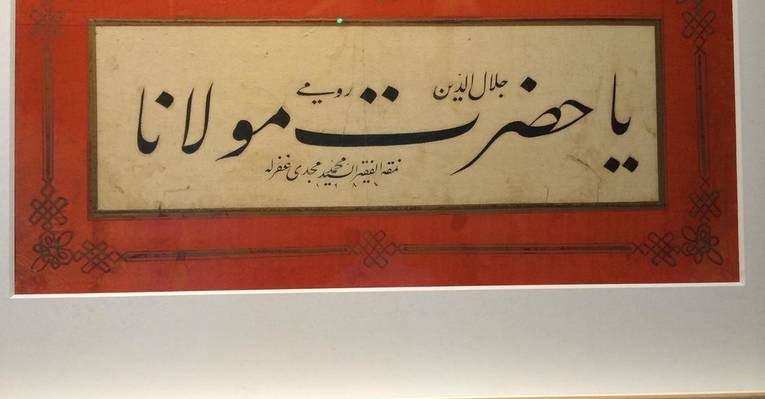 يا حضرت مولانا
جلال الدّين رومے
نمقه الفقير السيد محمد مجدى غفرله